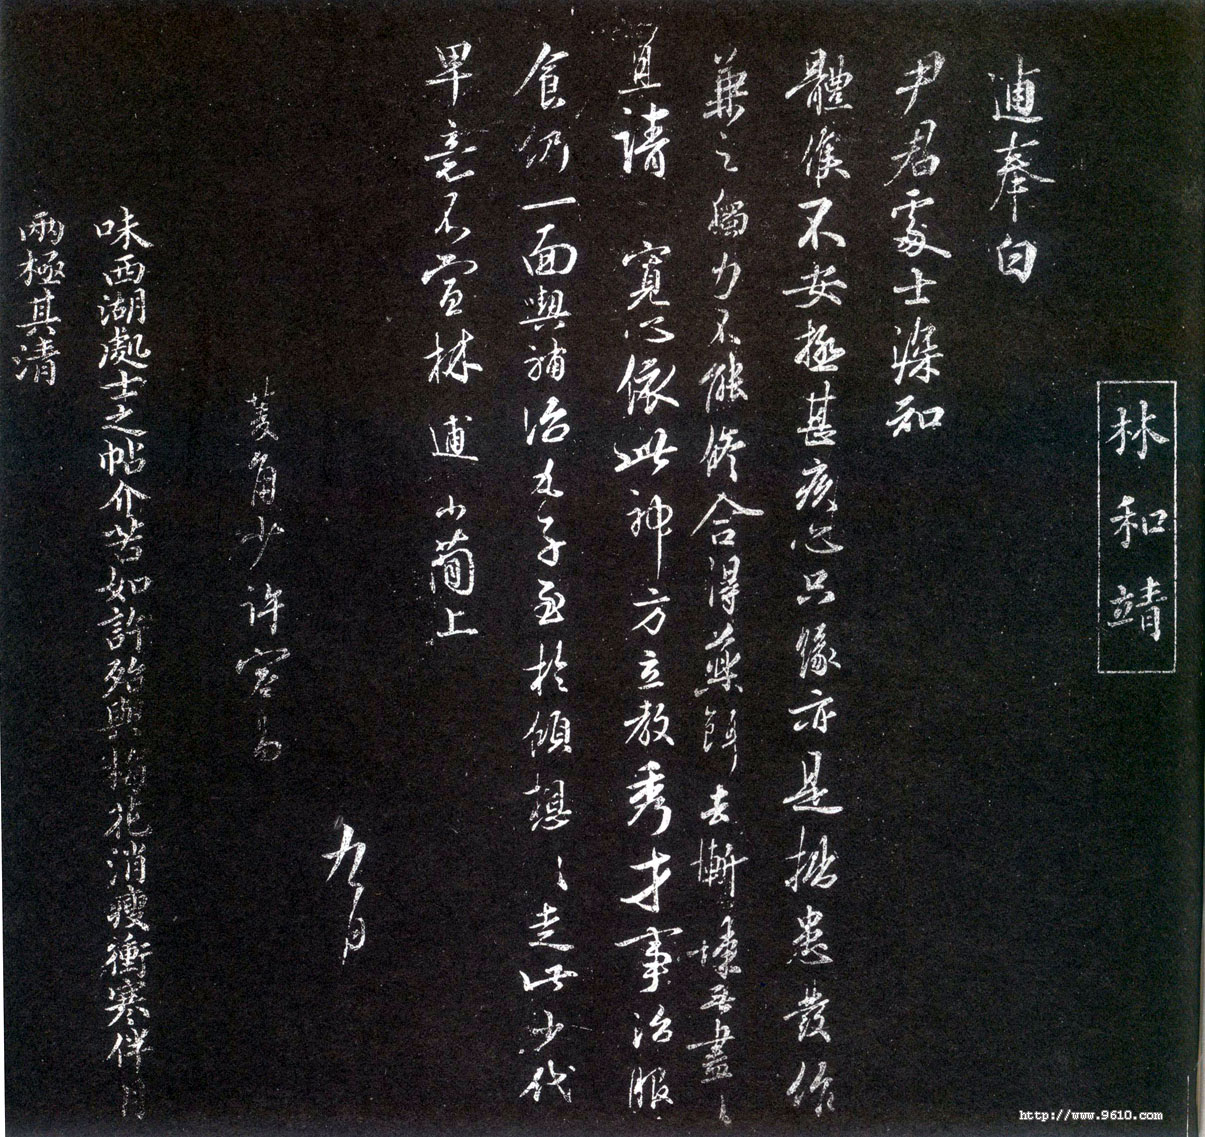 林和靖
逋奉白
尹君處士深知
體候不安極甚疾心只緣亦是拙患發作
兼之獨力不能修合得藥餌去慚悚無盡〻
且請 寬心依此神方立教秀才事治服
食仍一面與補治丸子至於傾想〻走此少代
早意不宣林逋小簡上
九月
菱角少許容易
味西湖處士之帖介苦如許殆與梅花消瘦衝寒伴月
兩極其清
http://www.9610.com